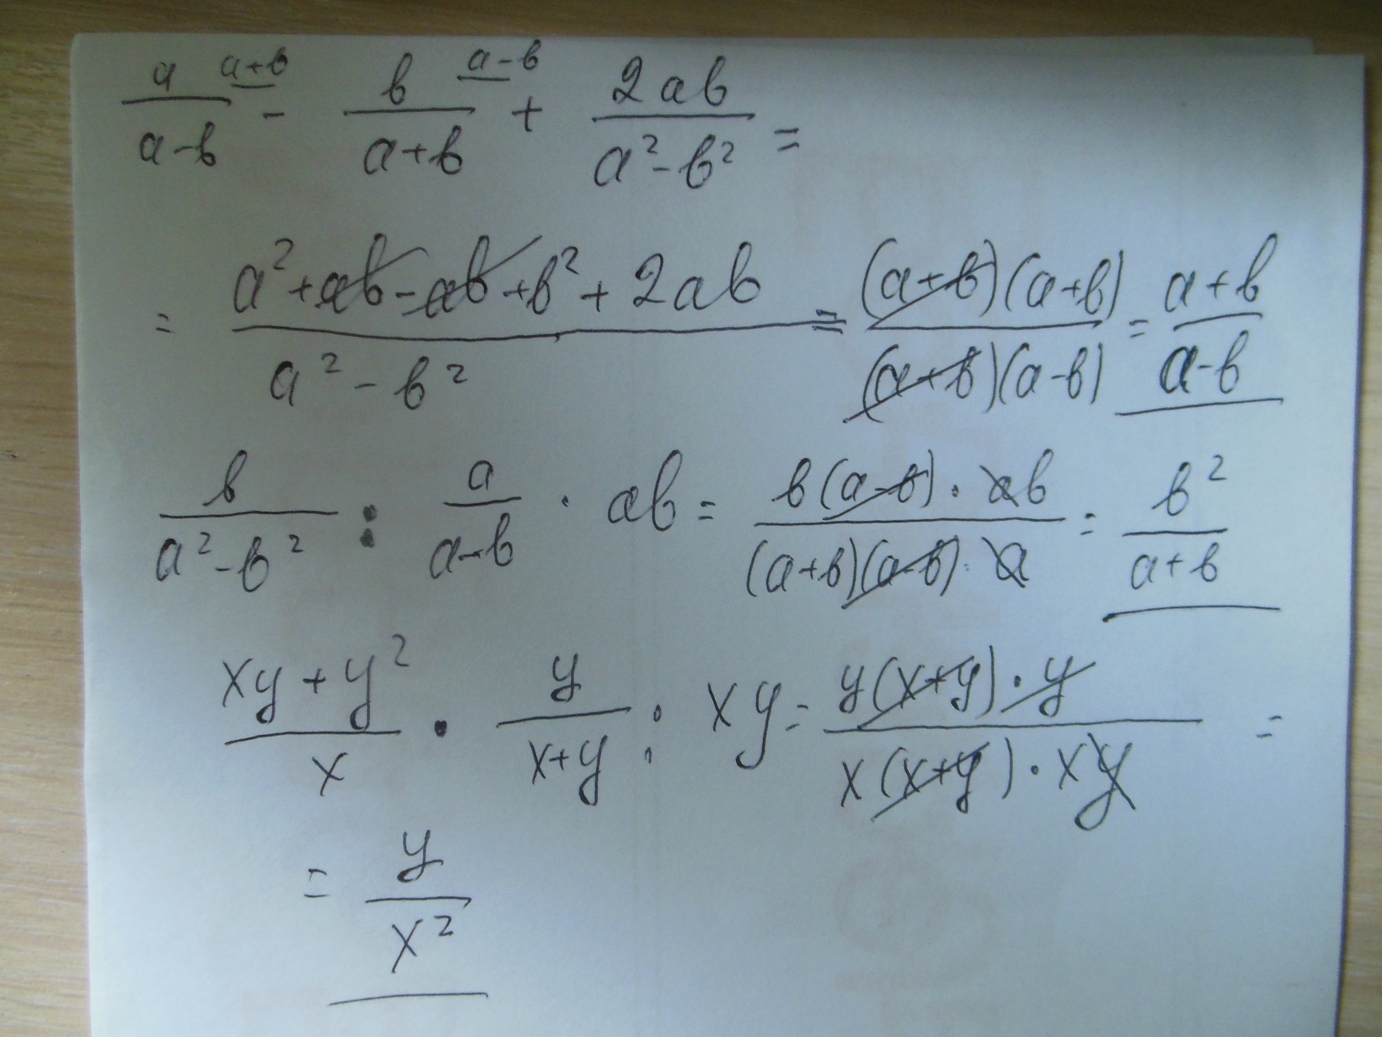 a/(a-b) ^(a+b) - b/(a+b) ^(a-b) + 2ab/(a²-b²) =
= (a²+ab-ab+b²+2ab)/(a²-b²) = (a+b)(a+b)/((a+b)(a-b)) = (a+b)/(a-b)
b/(a²-b²) : a/(a-b) · ab = (b(a-b)·ab)/((a+b)(a-b)·a) = b²/(a+b)
(xy+y²)/x · y/(x+y) : xy = (y(x+y)·y)/(x(x+y)·xy) =
= y/x²